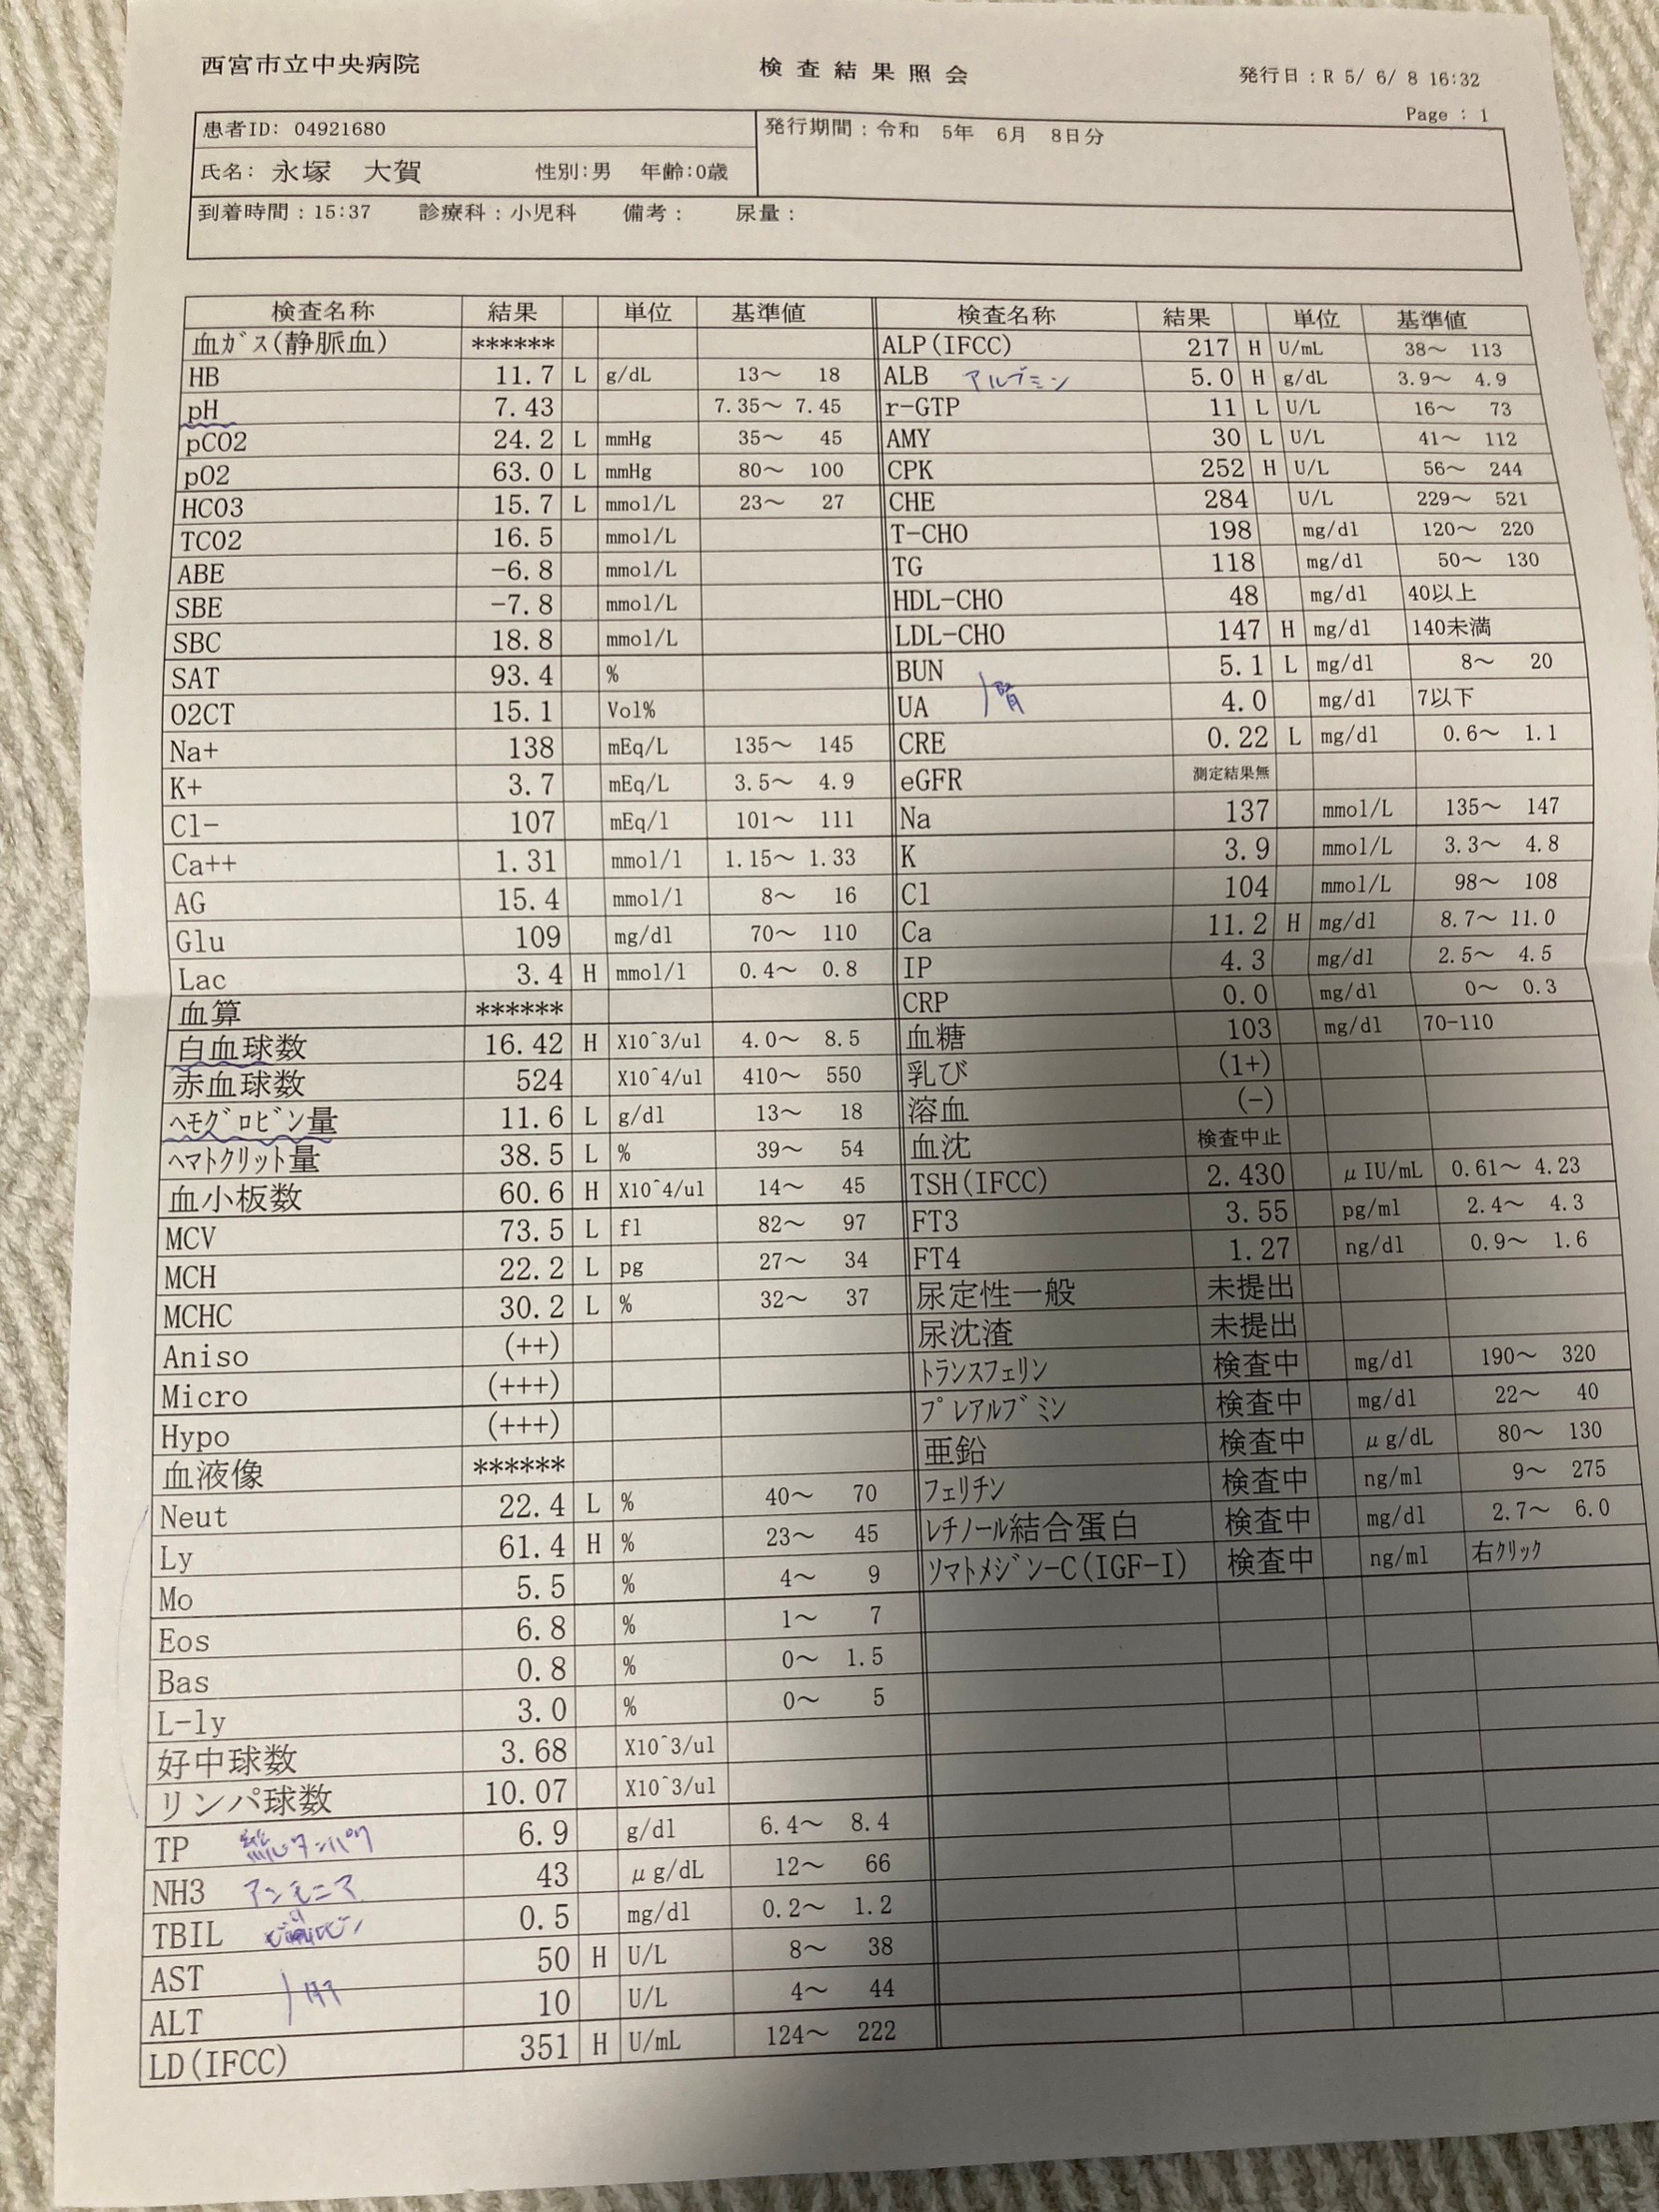 西宮市立中央病院
検査結果照会
発行日:R 5/ 6/ 8 16:32
Page : 1
患者ID: 04921680
発行期間:令和 5年 6月 8日分
氏名: 永塚 大賀 性別:男 年齢:0歳
到着時間:15:37 診療科:小児科 備考: 尿量:
検査名称 結果 単位 基準値
血ガス(静脈血) ******
HB 11.7 L g/dL 13〜 18
pH 7.43 7.35〜 7.45
pCO2 24.2 L mmHg 35〜 45
pO2 63.0 L mmHg 80〜 100
HCO3 15.7 L mmol/L 23〜 27
TCO2 16.5 mmol/L
ABE -6.8 mmol/L
SBE -7.8 mmol/L
SBC 18.8 mmol/L
SAT 93.4 %
O2CT 15.1 Vol%
Na+ 138 mEq/L 135〜 145
K+ 3.7 mEq/L 3.5〜 4.9
Cl- 107 mEq/l 101〜 111
Ca++ 1.31 mmol/l 1.15〜 1.33
AG 15.4 mmol/l 8〜 16
Glu 109 mg/dl 70〜 110
Lac 3.4 H mmol/l 0.4〜 0.8
血算 ******
白血球数 16.42 H X10^3/ul 4.0〜 8.5
赤血球数 524 X10^4/ul 410〜 550
ヘモグロビン量 11.6 L g/dl 13〜 18
ヘマトクリット量 38.5 L % 39〜 54
血小板数 60.6 H X10^4/ul 14〜 45
MCV 73.5 L fl 82〜 97
MCH 22.2 L pg 27〜 34
MCHC 30.2 L % 32〜 37
Aniso (++)
Micro (+++)
Hypo (+++)
血液像 ******
Neut 22.4 L % 40〜 70
Ly 61.4 H % 23〜 45
Mo 5.5 % 4〜 9
Eos 6.8 % 1〜 7
Bas 0.8 % 0〜 1.5
L-ly 3.0 % 0〜 5
好中球数 3.68 X10^3/ul
リンパ球数 10.07 X10^3/ul
TP 総タンパク 6.9 g/dl 6.4〜 8.4
NH3 アンモニア 43 μg/dL 12〜 66
TBIL ビリルビン 0.5 mg/dl 0.2〜 1.2
AST 50 H U/L 8〜 38
肝
ALT 10 U/L 4〜 44
LD(IFCC) 351 H U/mL 124〜 222
検査名称 結果 単位 基準値
ALP(IFCC) 217 H U/mL 38〜 113
ALB アルブミン 5.0 H g/dL 3.9〜 4.9
r-GTP 11 L U/L 16〜 73
AMY 30 L U/L 41〜 112
CPK 252 H U/L 56〜 244
CHE 284 U/L 229〜 521
T-CHO 198 mg/dl 120〜 220
TG 118 mg/dl 50〜 130
HDL-CHO 48 mg/dl 40以上
LDL-CHO 147 H mg/dl 140未満
BUN 5.1 L mg/dl 8〜 20
腎
UA 4.0 mg/dl 7以下
CRE 0.22 L mg/dl 0.6〜 1.1
eGFR 測定結果無
Na 137 mmol/L 135〜 147
K 3.9 mmol/L 3.3〜 4.8
Cl 104 mmol/L 98〜 108
Ca 11.2 H mg/dl 8.7〜 11.0
IP 4.3 mg/dl 2.5〜 4.5
CRP 0.0 mg/dl 0〜 0.3
血糖 103 mg/dl 70-110
乳び (1+)
溶血 (-)
血沈 検査中止
TSH(IFCC) 2.430 μIU/mL 0.61〜 4.23
FT3 3.55 pg/ml 2.4〜 4.3
FT4 1.27 ng/dl 0.9〜 1.6
尿定性一般 未提出
尿沈渣 未提出
トランスフェリン 検査中 mg/dl 190〜 320
プレアルブミン 検査中 mg/dl 22〜 40
亜鉛 検査中 μg/dL 80〜 130
フェリチン 検査中 ng/ml 9〜 275
レチノール結合蛋白 検査中 mg/dl 2.7〜 6.0
ソマトメジン-C(IGF-I) 検査中 ng/ml 右クリック